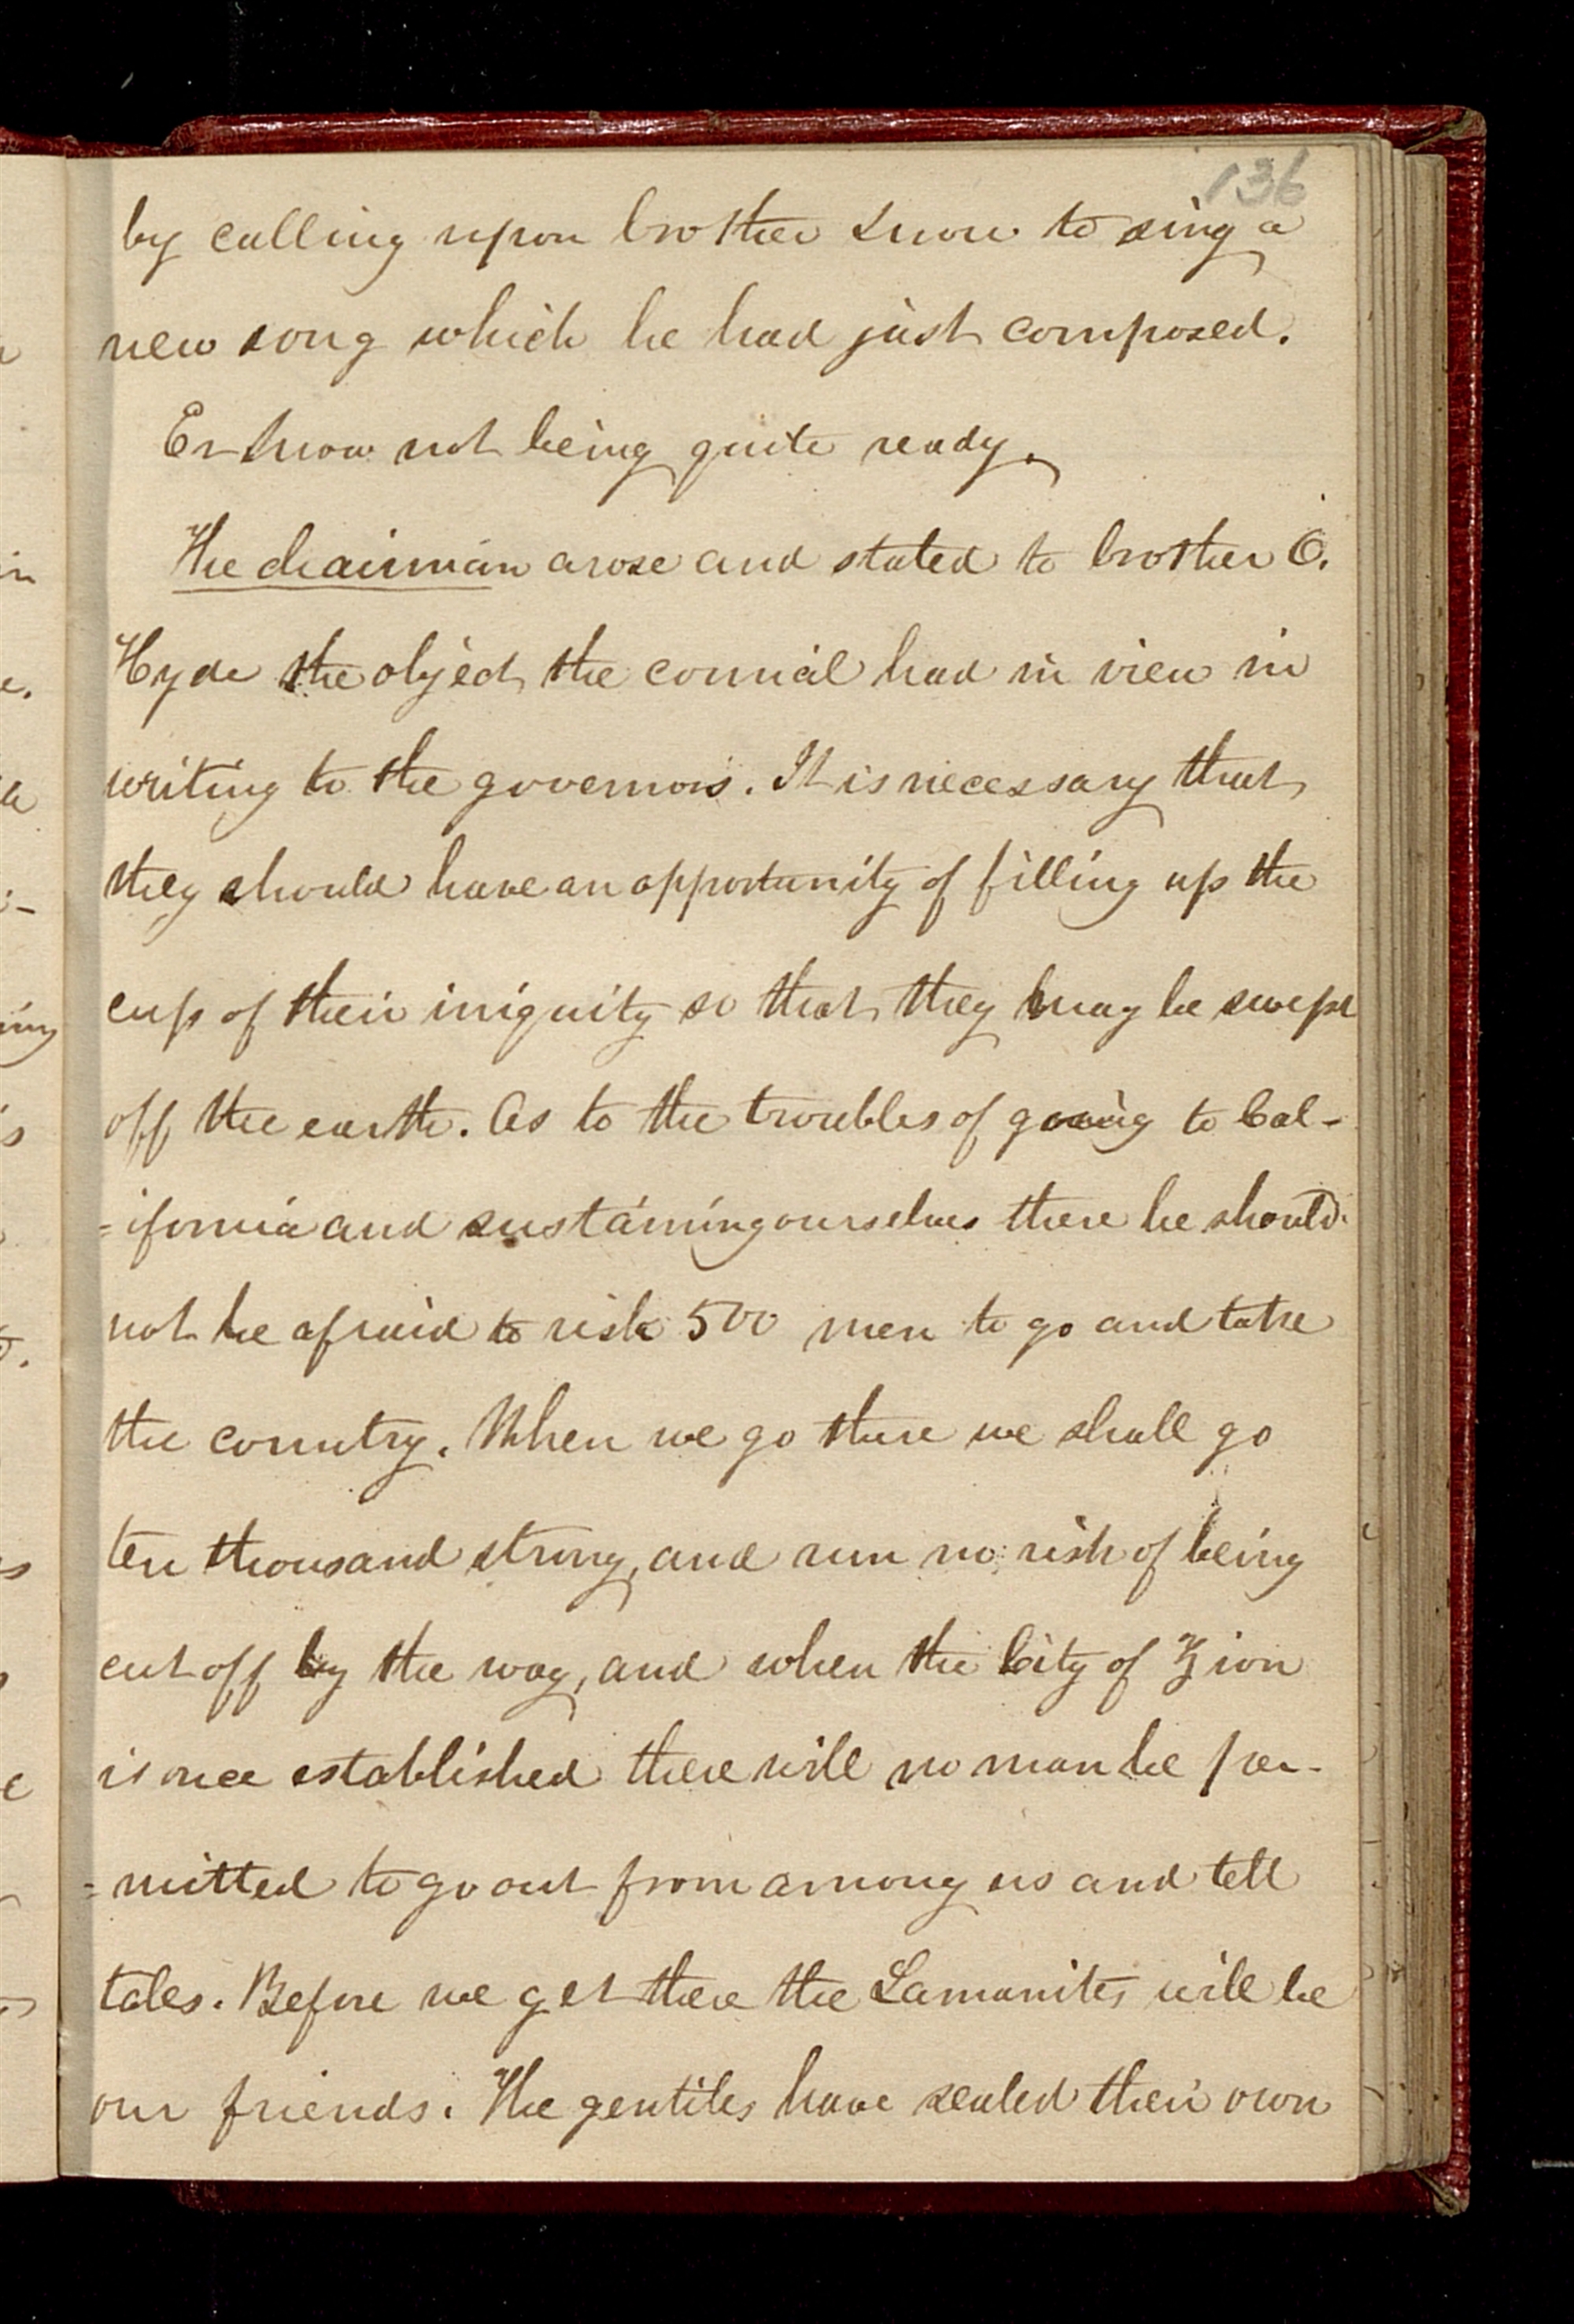 136
by calling upon brother Snow to sing a
new song which he had just composed.
Er Snow not being quite ready.
The chairman arose and stated to brother O.
Hyde the object the council had in view in
writing to the governors. It is necessary that
they should have an opportunity of filling up the
cup of their iniquity so that they may be swept
off the earth. As to the troubles of going to Cal-
=ifornia and sustaining ourselves there he should
not be afraid to risk 500 men to go and take
the country. When we go there we shall go
ten thousand strong, and run no risk of being
cut off by the way, and when the City of Zion
is once established there will no man be per-
=mitted to go out from among us and tell
tales. Before we get there the Lamanites will be
our friends. The gentiles have sealed their own